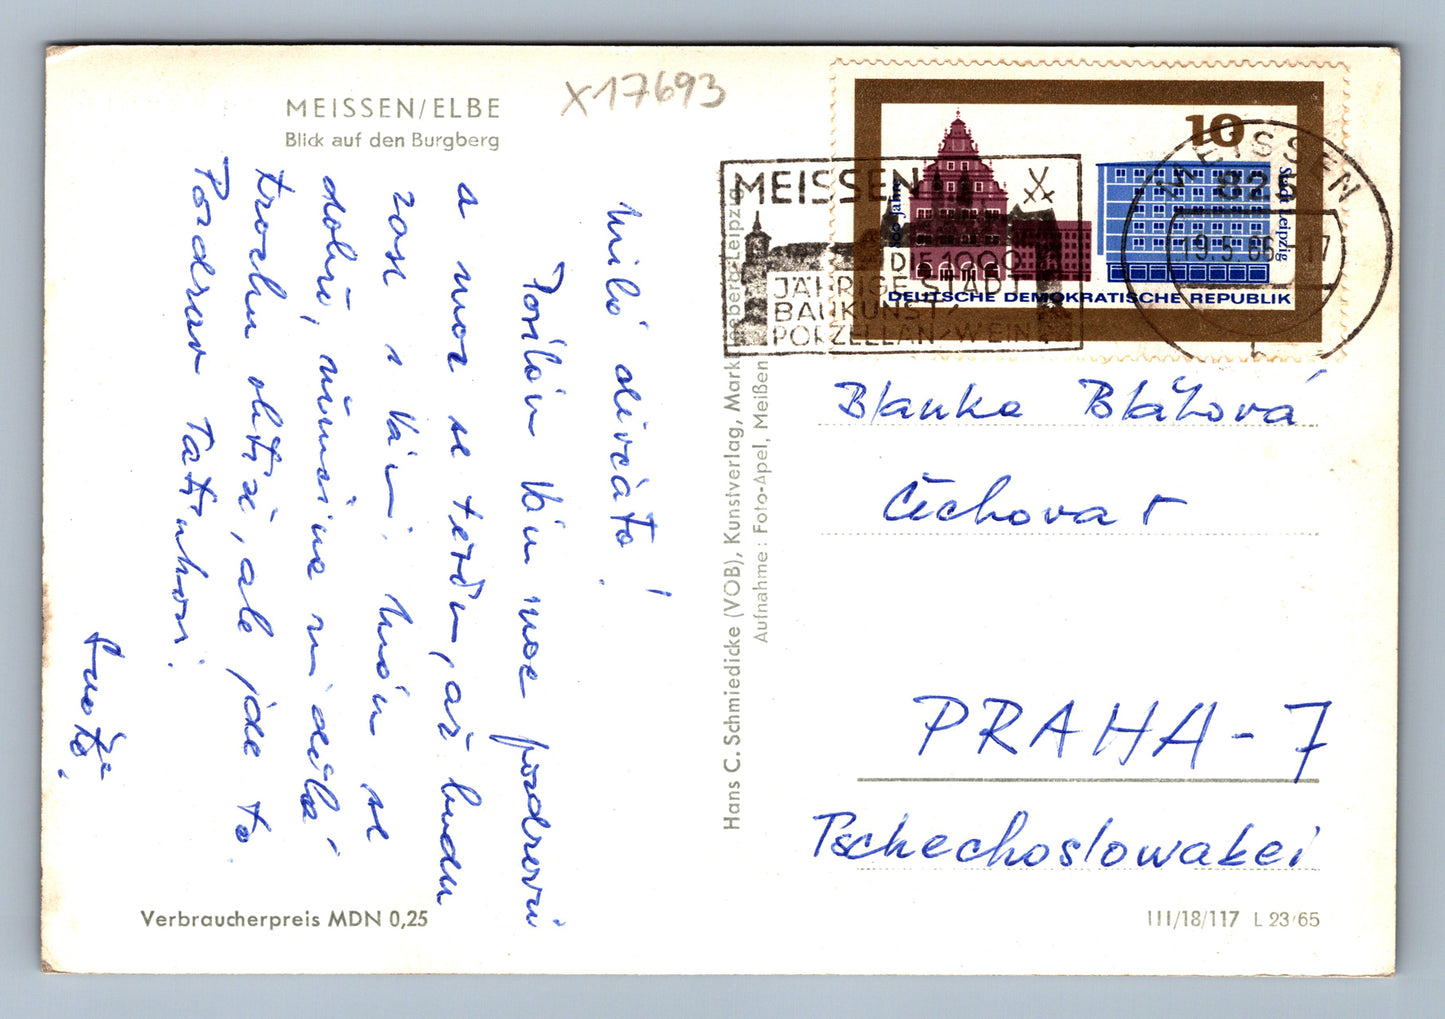 MEISSEN/ELBE
Blick auf den Burgberg
X17693
Milá děvčata!
Posílám Vám moc pozdravů
a moc se těším, až budu
zase s Vámi. Mám se
dobře, němčina mi dělá
trochu obtíže, ale jde to.
Pozdrav Tatínkovi.
Verbraucherpreis MDN 0,25
Hans C. Schmiedicke (VOB), Kunstverlag, Markkleeberg-Leipzig
Aufnahme: Foto-Apel, Meißen
MEISSEN
DIE 1000
JÄHRIGE STADT
BAUKUNST/
PORZELLAN/WEIN
10
800 Jahre
Stadt Leipzig
DEUTSCHE DEMOKRATISCHE REPUBLIK
MEISSEN
825
19.5.66-17
Blanka Bláhová
Čechova
PRAHA-7
Tschechoslowakei
III/18/117 L 23/65